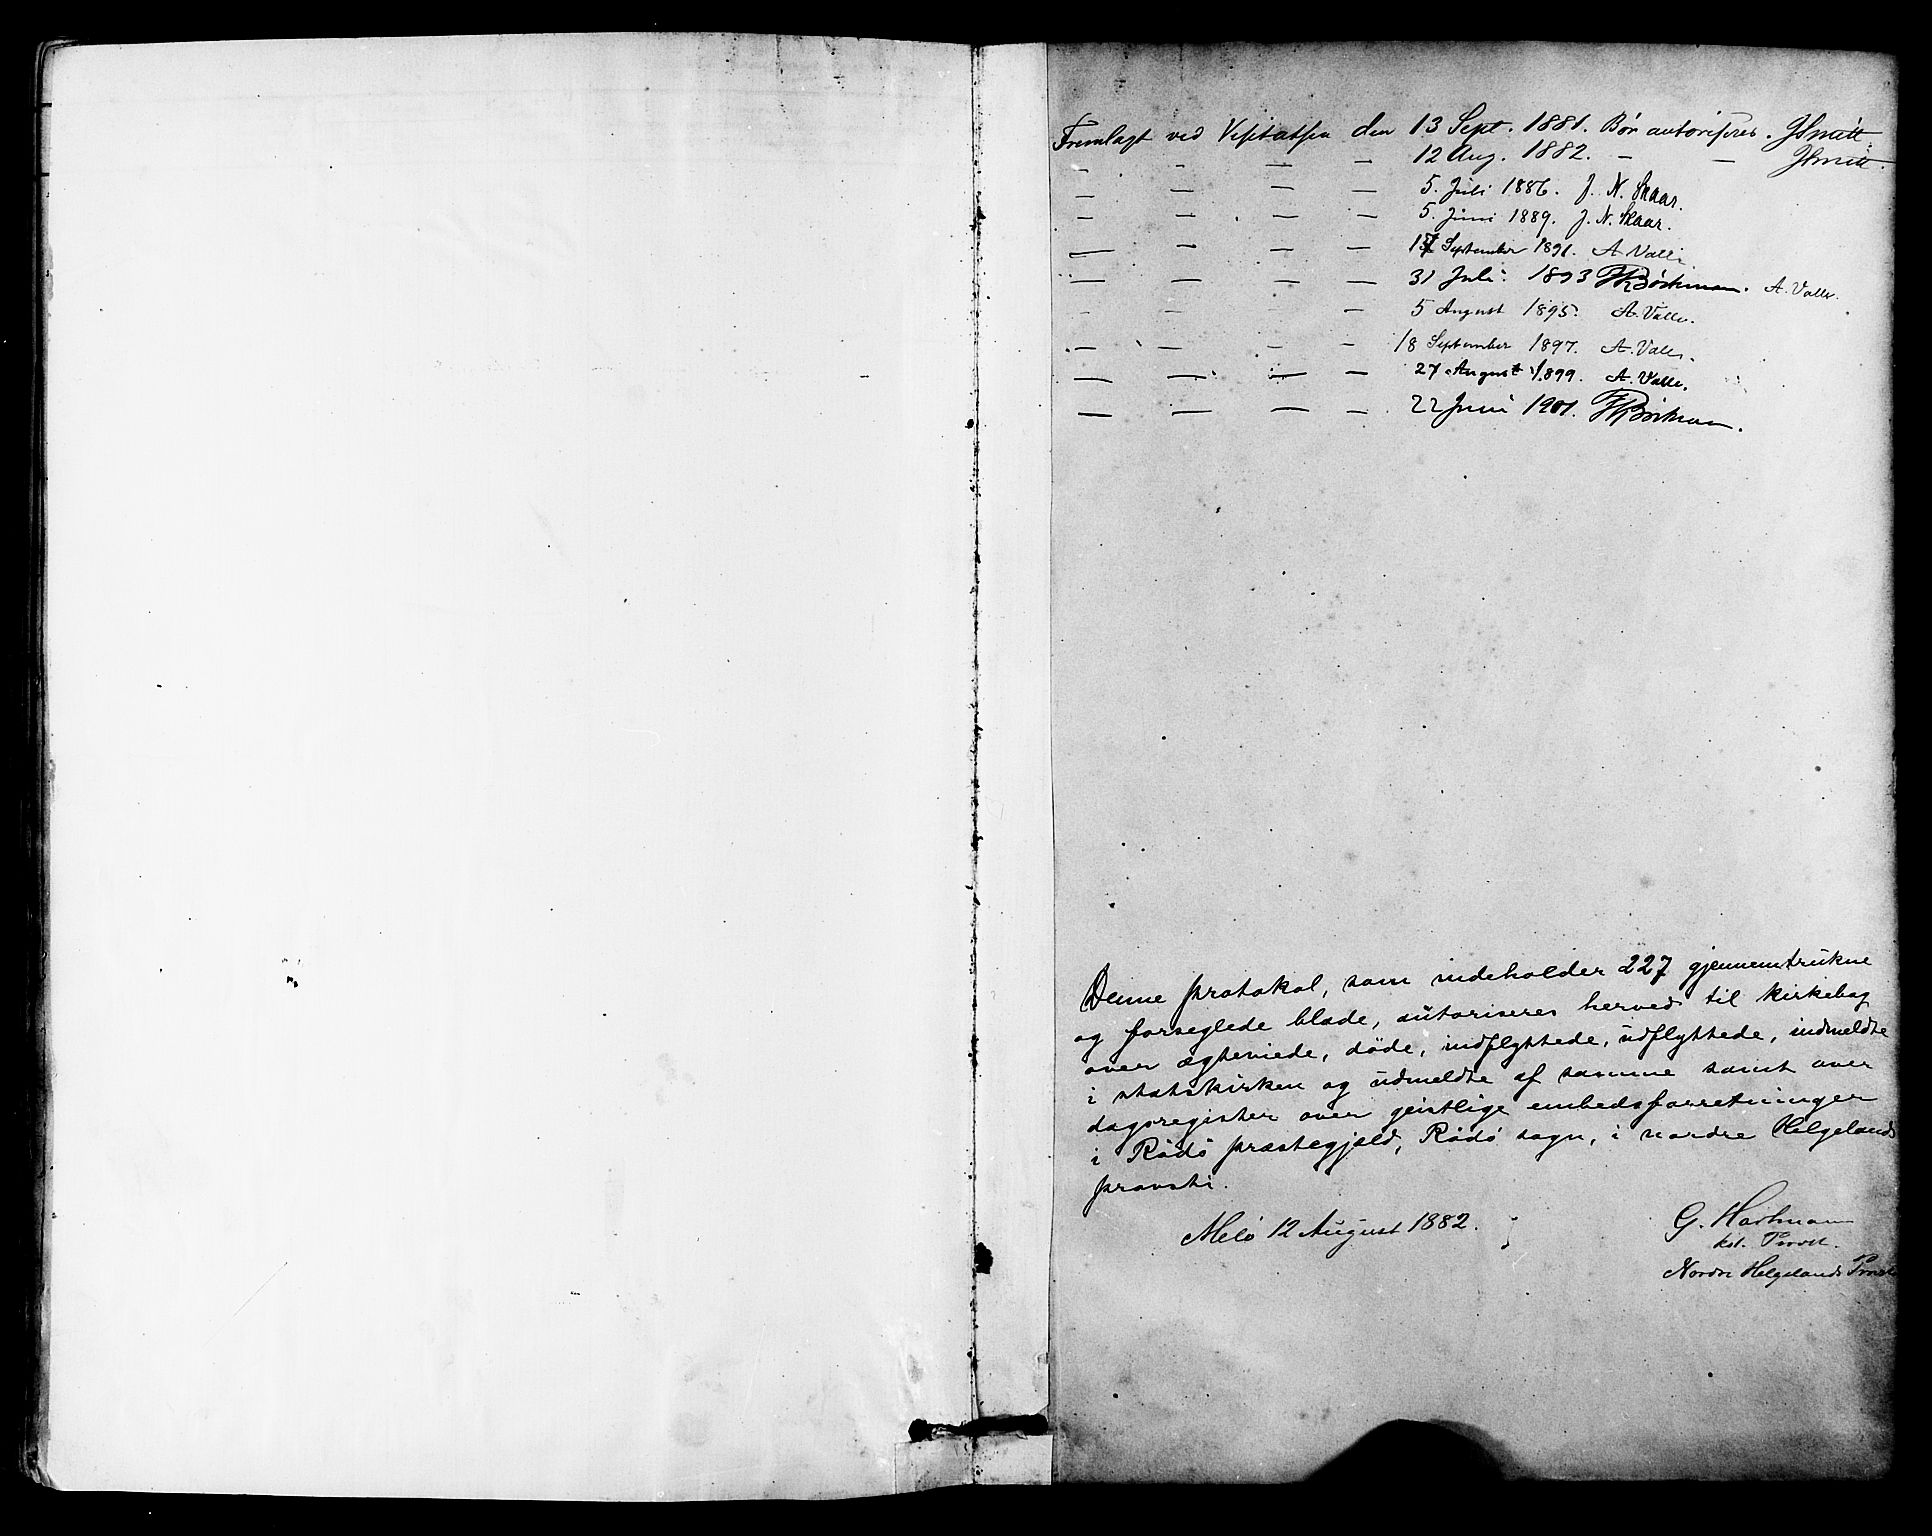 Fremlagt ved Visitatsen den 13 Sept. 1881. Bør autoriseres. JSmitt.
– – – – 12 Aug. 1882. – – JSmitt.
– – – – 5. Juli 1886. J. N. Skaar.
– – – – 5. Juni 1889. J. N. Skaar.
– – – – September 1891. A Valle
– – – – 31 Juli 1893 Bøckman. A. Valle.
– – – – 5 August 1895. A. Valle.
– – – – 18 September 1897. A. Valle.
– – – – 27 August 1899. A. Valle.
– – – – 22 Juni 1901. Bøckman.
Denne protokol, som indeholder 227 gjennemtrukne
og forseglede blade, autoriseres herved til kirkebog
over ægteviede, döde, indflyttede, udflyttede, indmeldte
i statskirken og udmeldte af samme samt over
dagsregister over geistlige embedsforretninger
i Rödö præstegjeld, Rödö sogn, i nordre Helgelands
provsti.
Melö 12 August 1882.
G. Hartmann
kst. Provst.
Nordre Helgelands Provsti